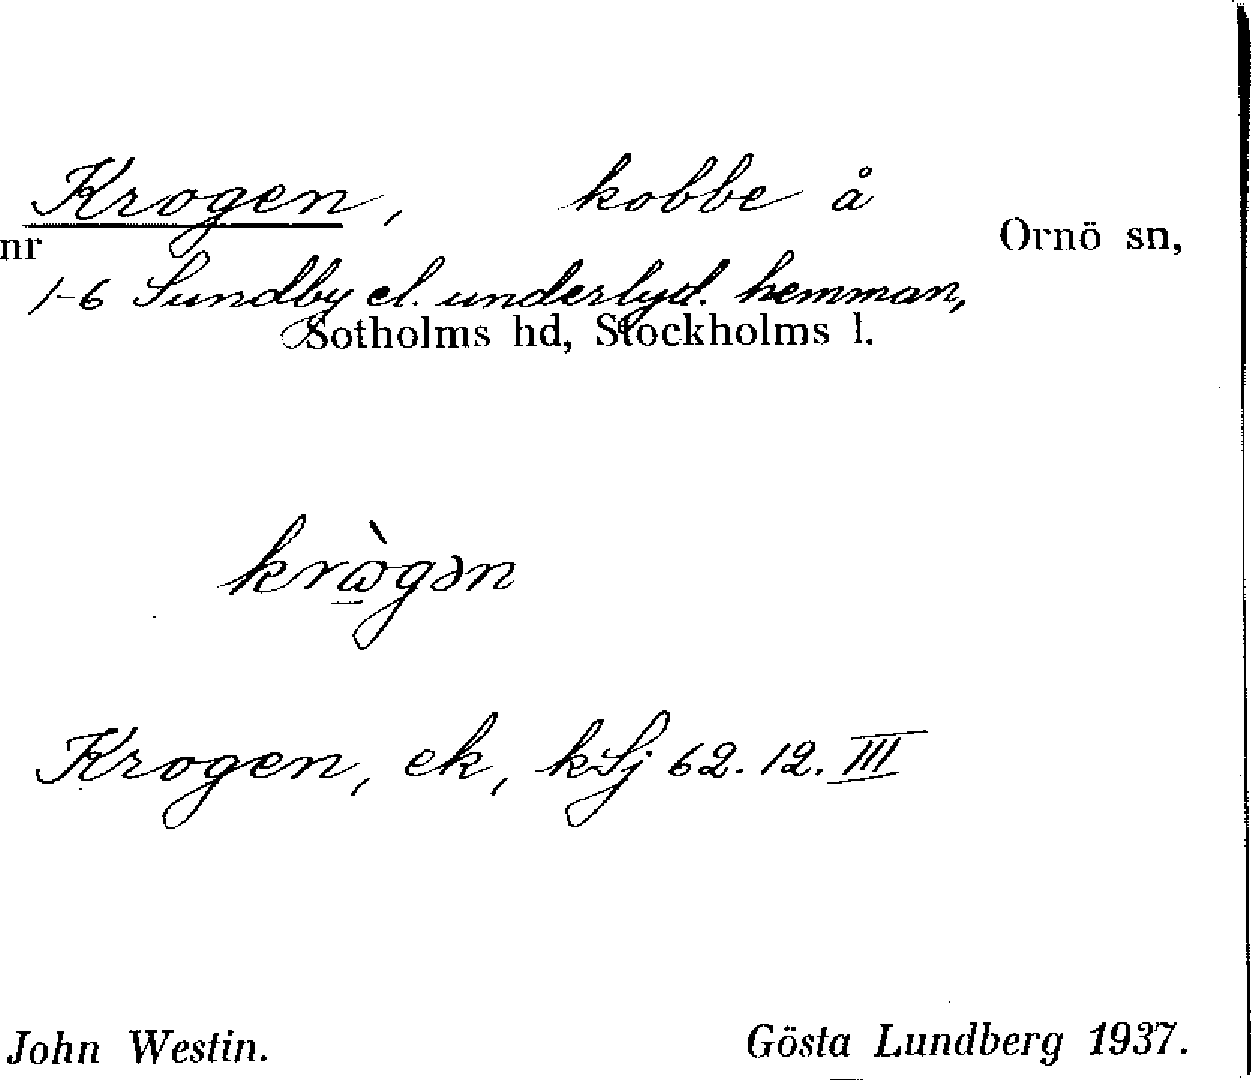 Krogen, kobbe å
nr Ornö sn,
1-6 Sundby el. underlyd. hemman,
Sotholms hd, Stockholms l.
krὼ̲gən
Krogen, ek, kSj 62. 12. III
John Westin. Gösta Lundberg 1937.